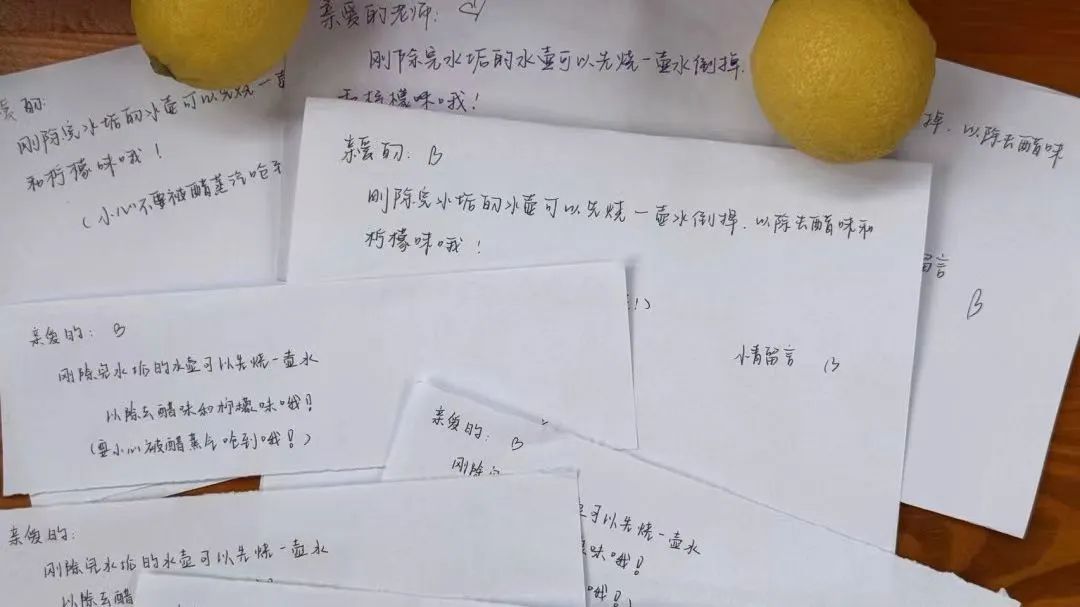 亲爱的老师:
刚除完水垢的水壶可以先烧一壶水倒掉.
和柠檬味哦!
爱的:
刚除完水垢的水壶可以先烧一
和柠檬味哦!
(小心不要被醋蒸汽呛到
掉, 以除去醋味
留言
B
亲爱的: B
刚除完水垢的水壶可以先烧一壶水倒掉, 以除去醋味和
柠檬味哦!
!)
小青留言 B
亲爱的: B
刚除完水垢的水壶可以先烧一壶水
以除去醋味和柠檬味哦!
(要小心被醋蒸气呛到哦!)
亲爱的: B
刚除
可以先烧一壶水
味哦!
哦!)
亲爱的:
刚除完水垢的水壶可以先烧一壶水
以除去醋